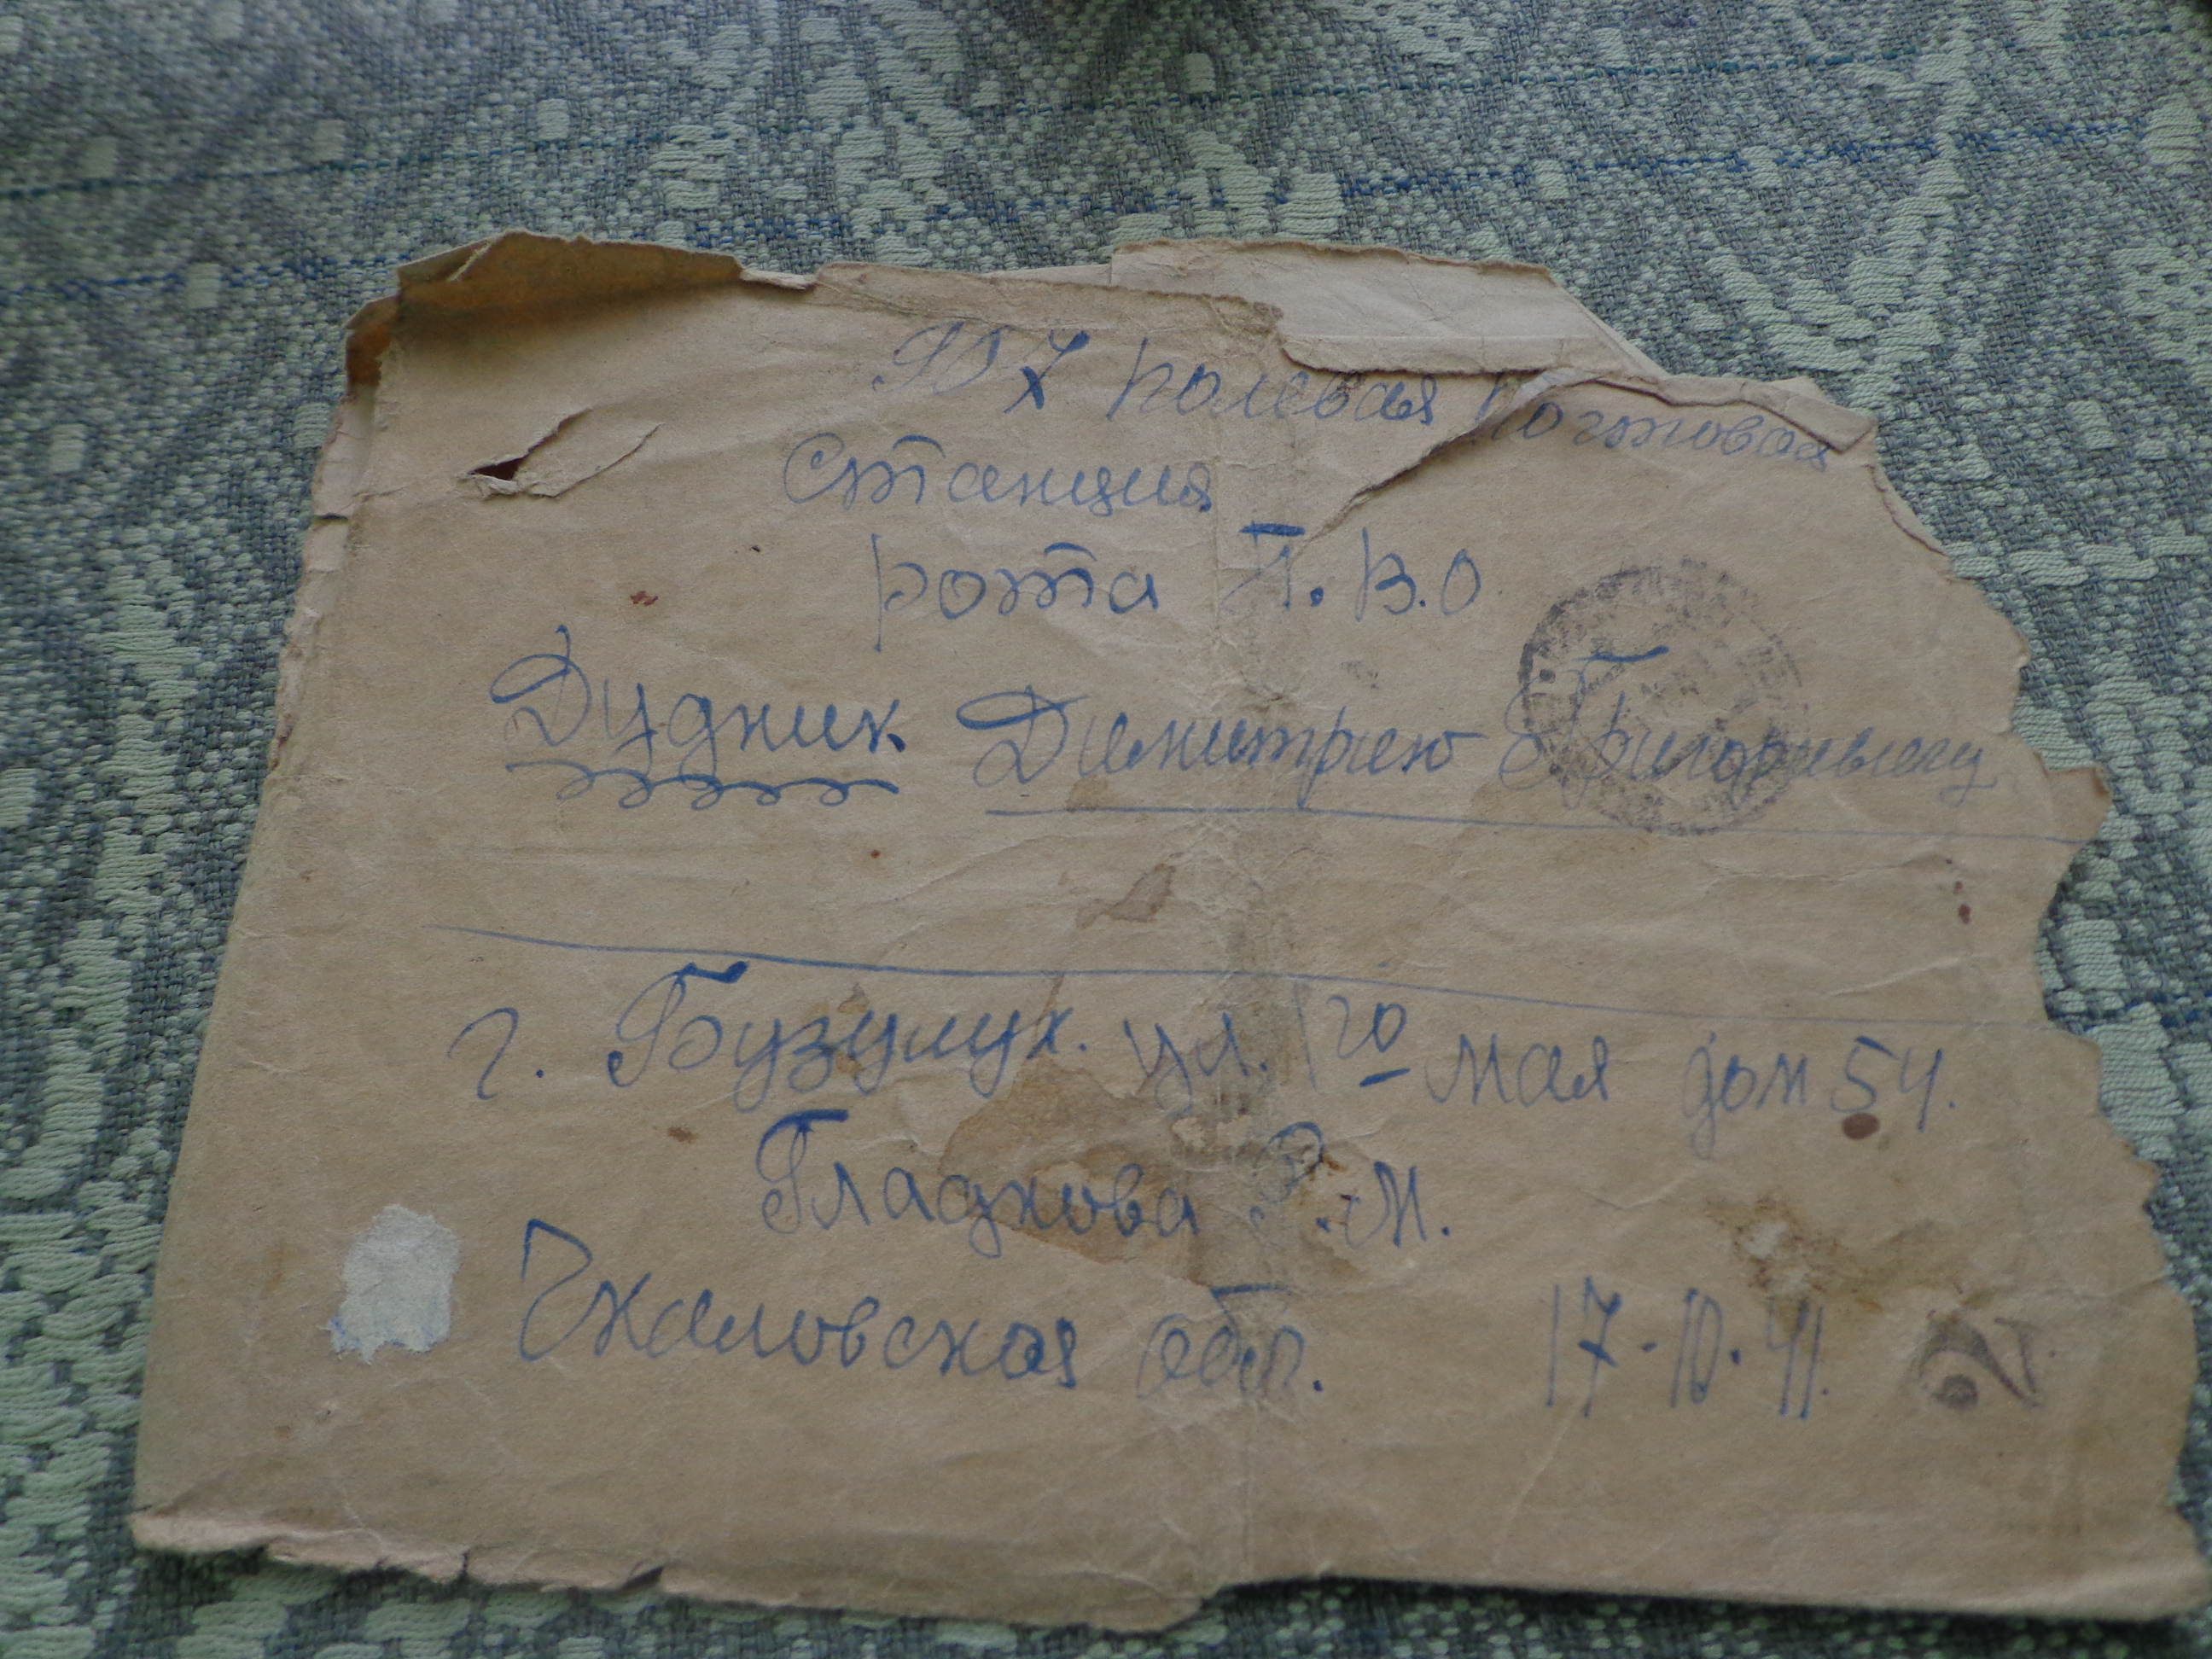 907 полевая почтовая
станция
рота П.В.О
Дудник Димитрею Григорьевичу
г. Бузулук. ул. 1го мая дом 54.
Гладкова Р.М.
Чкаловская обл. 17-10.41.